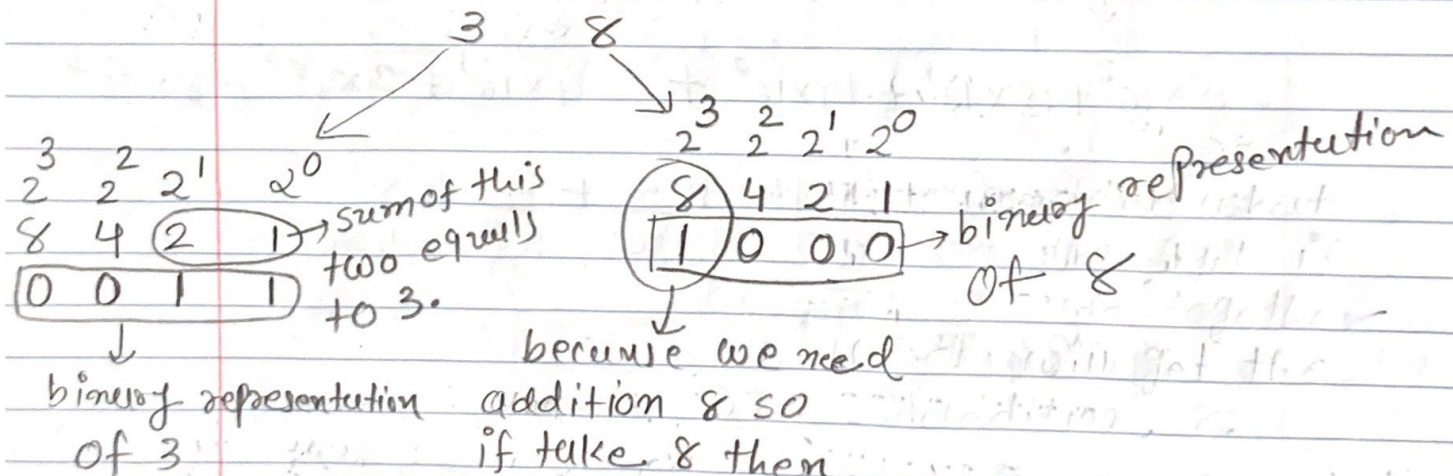 3 8
2³ 2² 2¹ 2⁰
8 4 2 1 → sum of this two equals to 3.
0 0 1 1
binary representation of 3
2³ 2² 2¹ 2⁰
8 4 2 1
1 0 0 0 → binary representation of 8
because we need
addition 8 so
if take 8 then